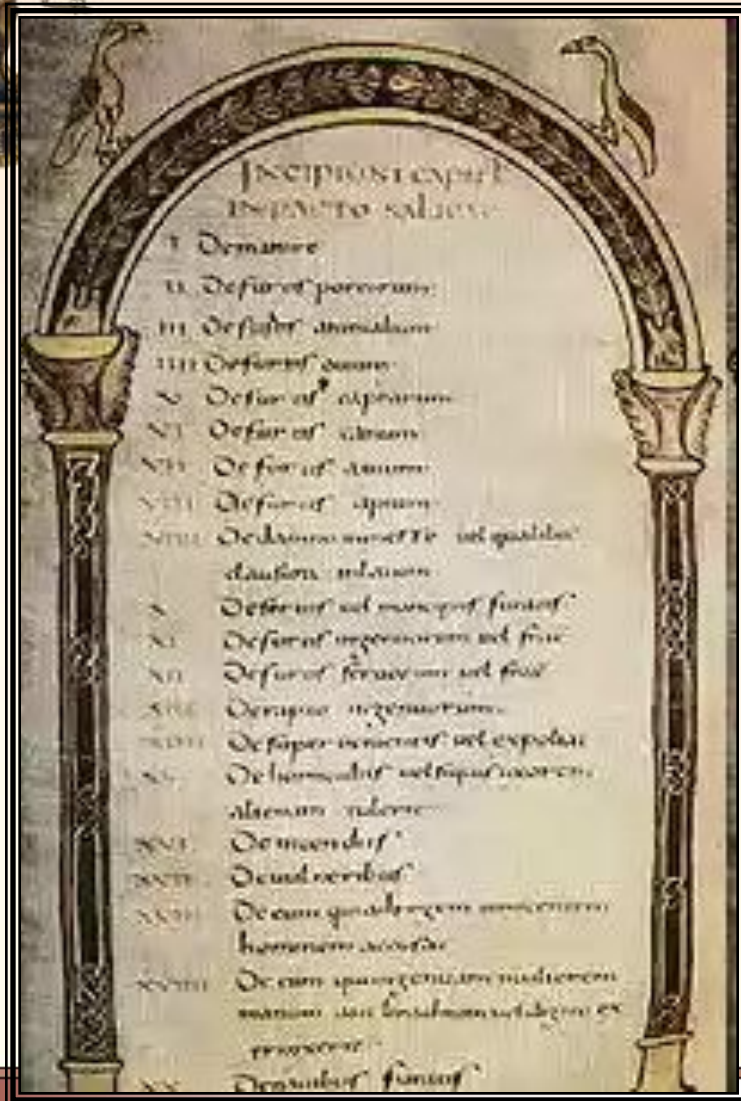 INCIPIUNT CAPITL
IN PACTO SALICAE
I De mannire
II De furtis porcorum
III De furtis animalium
IIII De furtis ouium
V De furtis caprarum
VI De furtis canum
VII De furtis auium
VIII De furtis apium
VIIII De damno in messe uel qualibet
clausura inlatum
X De seruis uel mancipiis furatis
XI De furtis ingenuorum uel frac
XII De furtis seruorum uel frac
XIII De rapto ingenuorum
XIIII De superuenientis uel expoliat
XV De homicidiis uel si quis uxorem
alienam tulerit
XVI De incendiis
XVII De uulneribus
XVIII De eum qui ad regem innocentem
hominem accusat
XVIIII De eum qui ingenuam mulierem
manum
XX De nauibus furatis